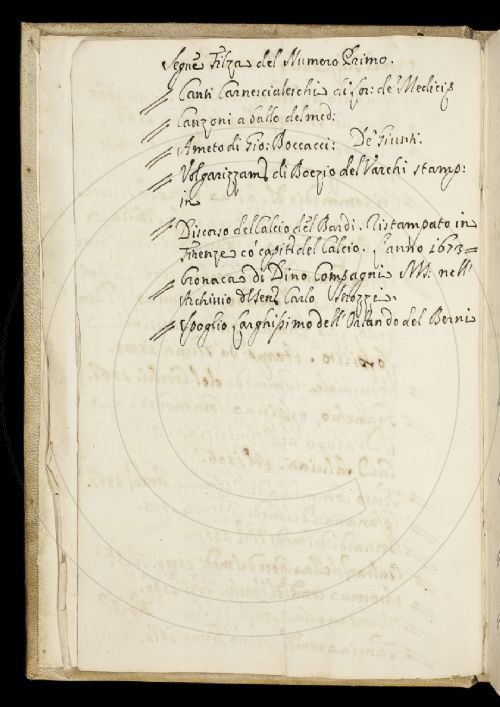 Segue Filza del Numero Primo.
Canti Carnescialeschi di Lor: de' Medici
Canzoni a ballo del med:
Ameto di Gio: Boccacci: De' Giunti.
Volgarizzam: di Boezio del Varchi stamp:
in
Discorso del Calcio del Bardi. Ristampato in
Firenze co' capitli del Calcio. l'anno 1673=
Cronaca di Dino Compagni MS: nell'
Archivio del Sen: Carlo Strozzi.
Spoglio larghissimo dell'Orlando del Berni